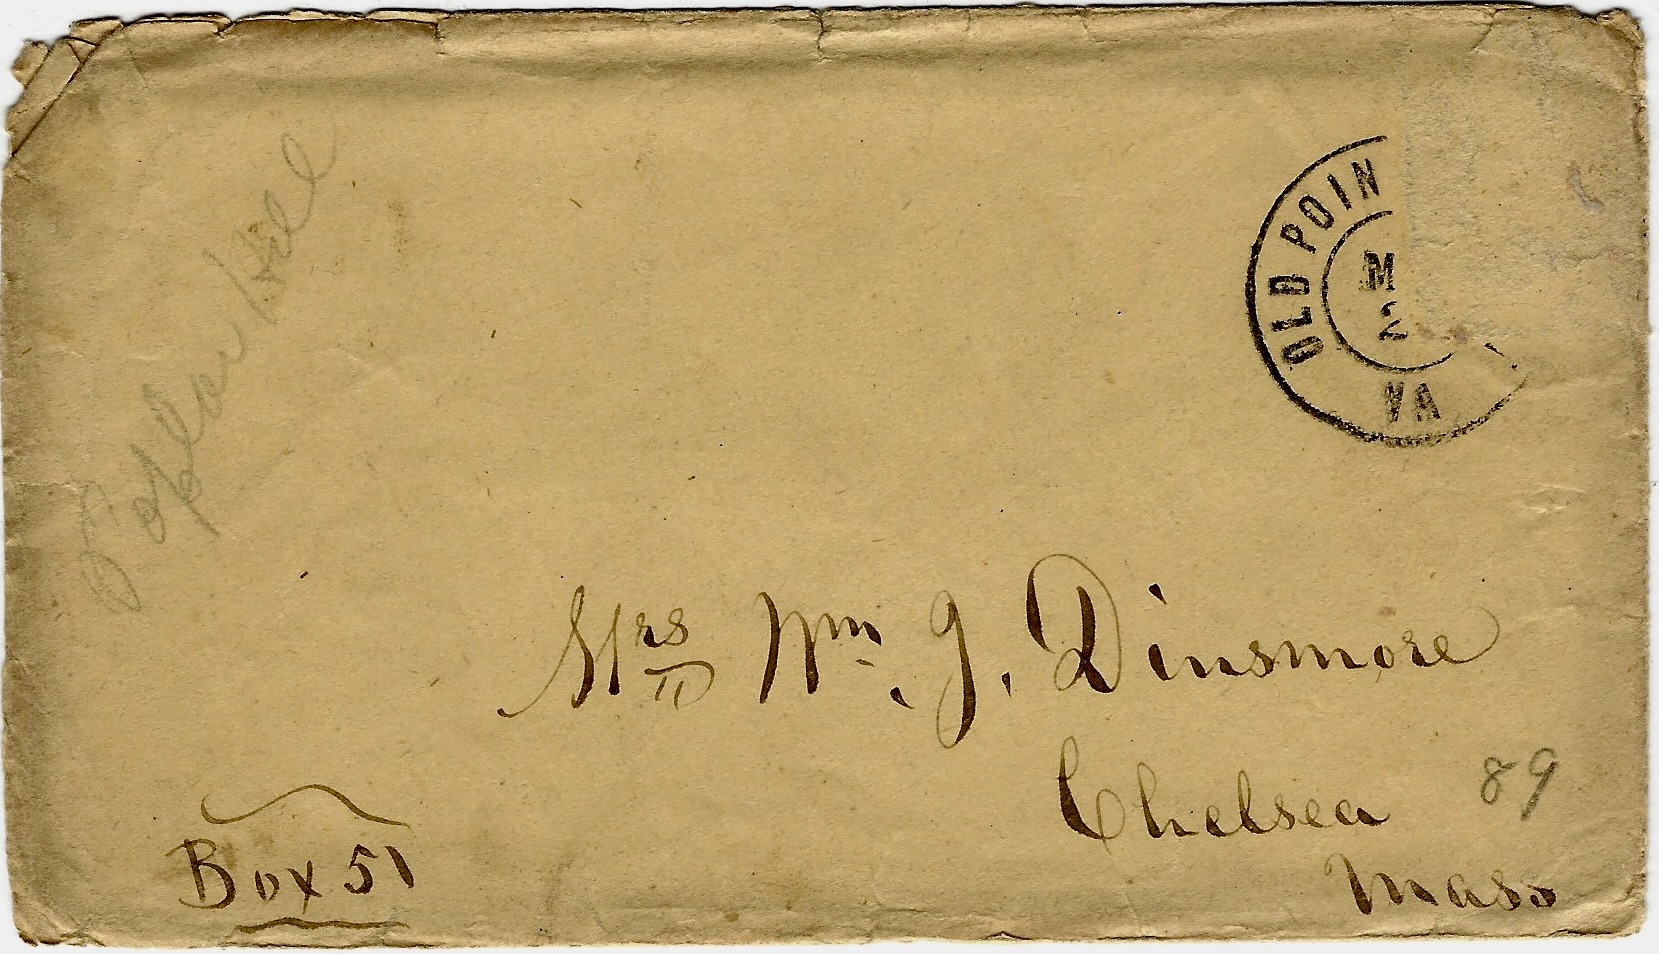 Poplar Hill
OLD POIN
M
2
VA
Mrs Wm. J. Dinsmore
Chelsea
89
Mass
Box 51